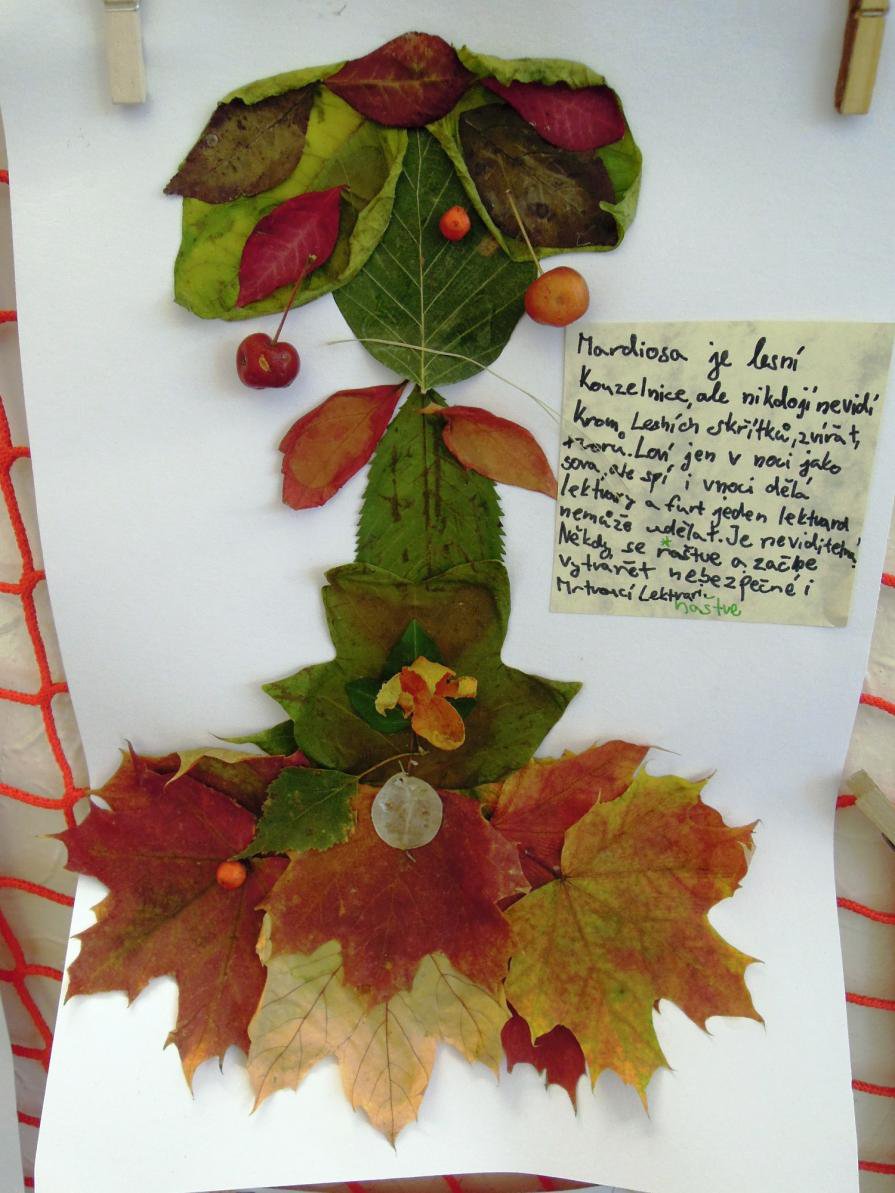 Mardiosa je lesní
Kouzelnice, ale nikdojí nevidí
Krom, Lesních skřítků, zvířat,
tvorů. Loví jen v noci jako
sova, ale spí i vnoci dělá
lektvary a furt jeden lektvard
nemůže udělat. Je neviditelná
Někdy se *raštve a začne
vytvářet nebezpečné i
Mrtvoucí Lektvari.
naštve